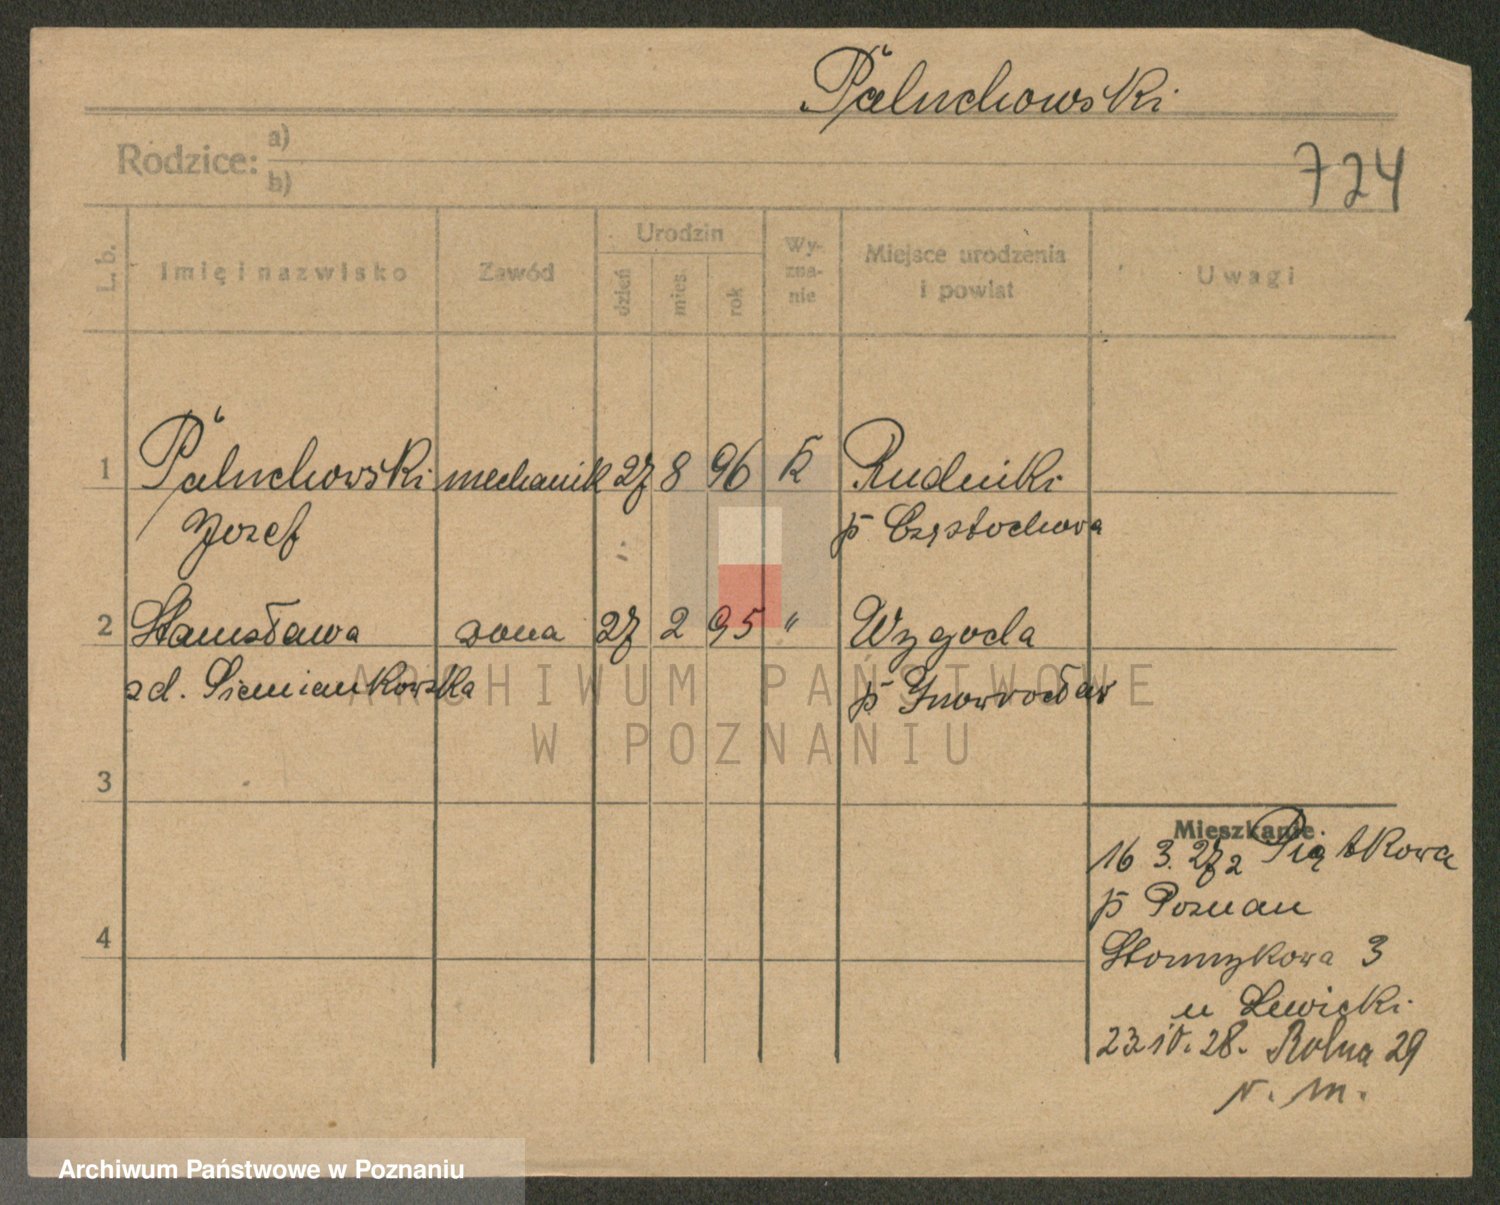 Paluchowski
Rodzice: a)
b)
724
L. b.
Imię i nazwisko
Zawód
Urodzin
dzień
mies.
rok
Wy-
zna-
nie
Miejsce urodzenia
i powiat
Uwagi
1 Paluchowski mechanik 27 8 96 k Rudniki
Jozef p Częstochowa
2 Stanisława zona 27 2 95 " Wygoda
zd. Siemiankowska p Inowrocław
3
4
Mieszkanie.
16 3. 27 z Piątkowa
p Poznan
3
u Lewicki
23 IV. 28. Rolna 29
n. m.
ARCHIWUM PAŃSTWOWE
W POZNANIU
Archiwum Państwowe w Poznaniu